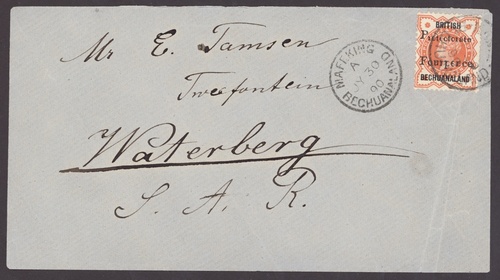 BRITISH
Protectorate
Fourpence
BECHUANALAND
MAFEKING
A
JY 30
90
BECHUANALAND
Mr E. Tamsen
Tweefontein
Waterberg
S. A. R.